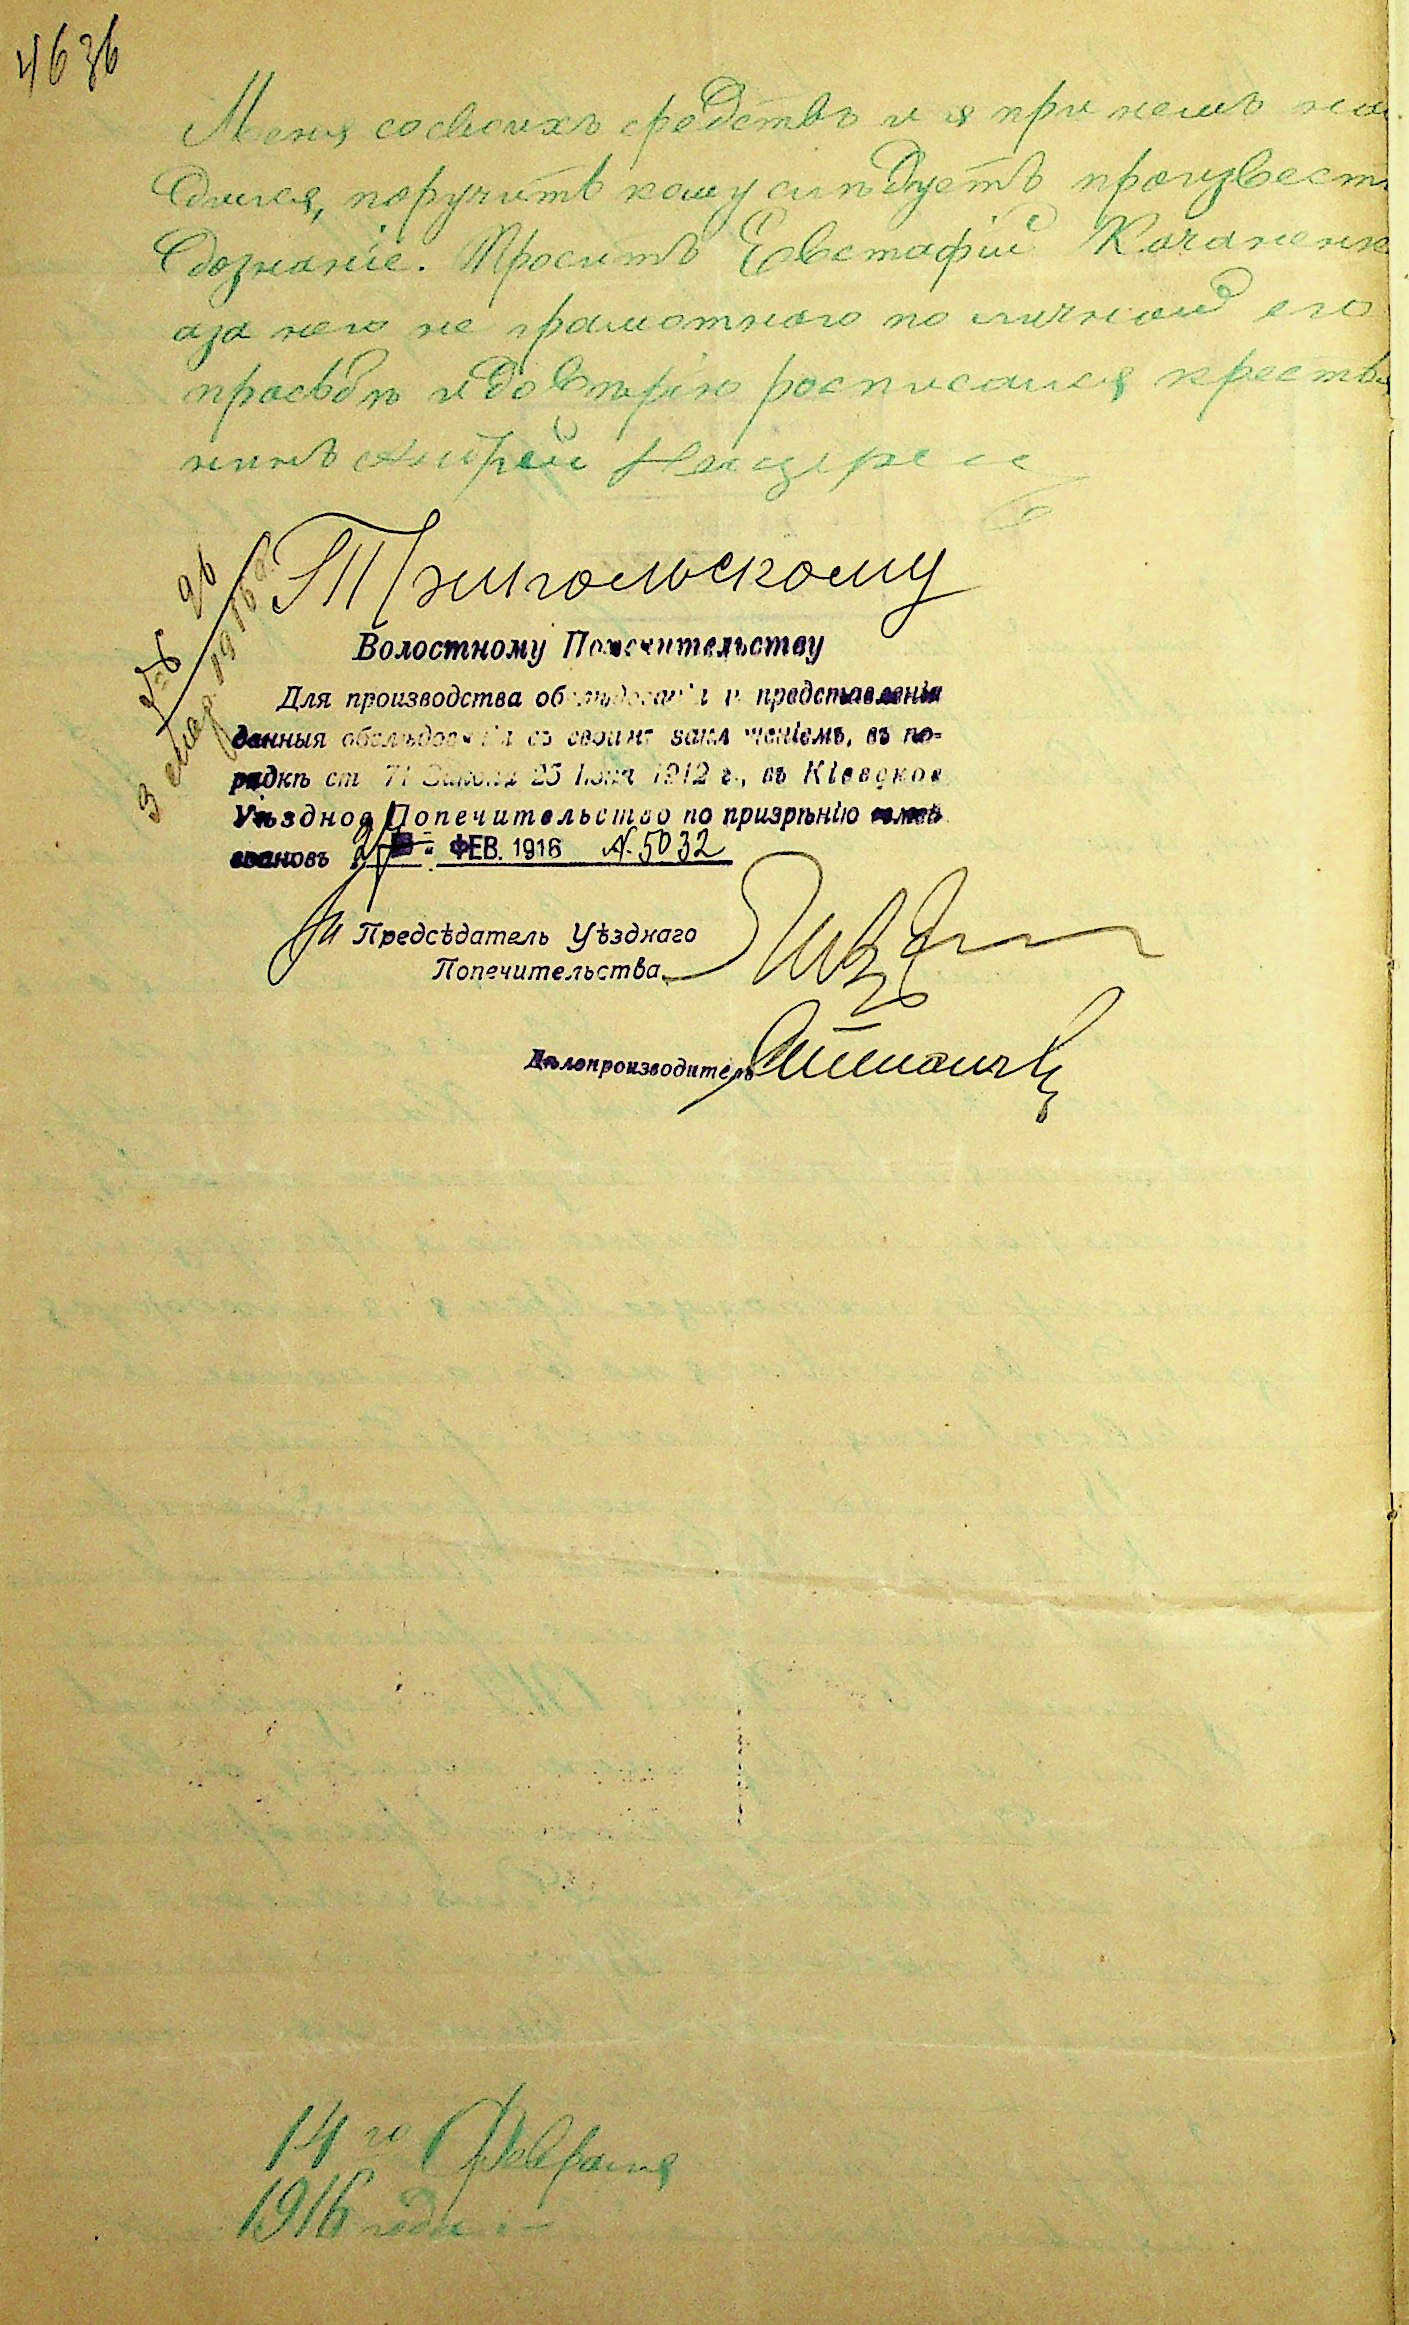 4636
Меня со своихъ средствъ и я при немъ нахо
дился, поручить кому слѣдуетъ произвести
дознаніе. Проситъ Евстафій Качаненко
а за него не грамотного по личной его
просьбѣ и довѣрію росписался крестья
нинъ Андрей
№ 96
3 мар. 1916 г.
Волостному Попечительству
Для производства обслѣдованія и представленія
данныя обслѣдованія съ своимъ заключеніемъ, въ по-
рядкѣ ст 71 Закона 25 Іюня 1912 г., въ Кіевское
Уѣздное Попечительство по призрѣнію семей
ФЕВ. 1916 № 5032
Предсѣдатель Уѣзднаго
Попечительства
Дѣлопроизводитель
14го Февраля
1916 года